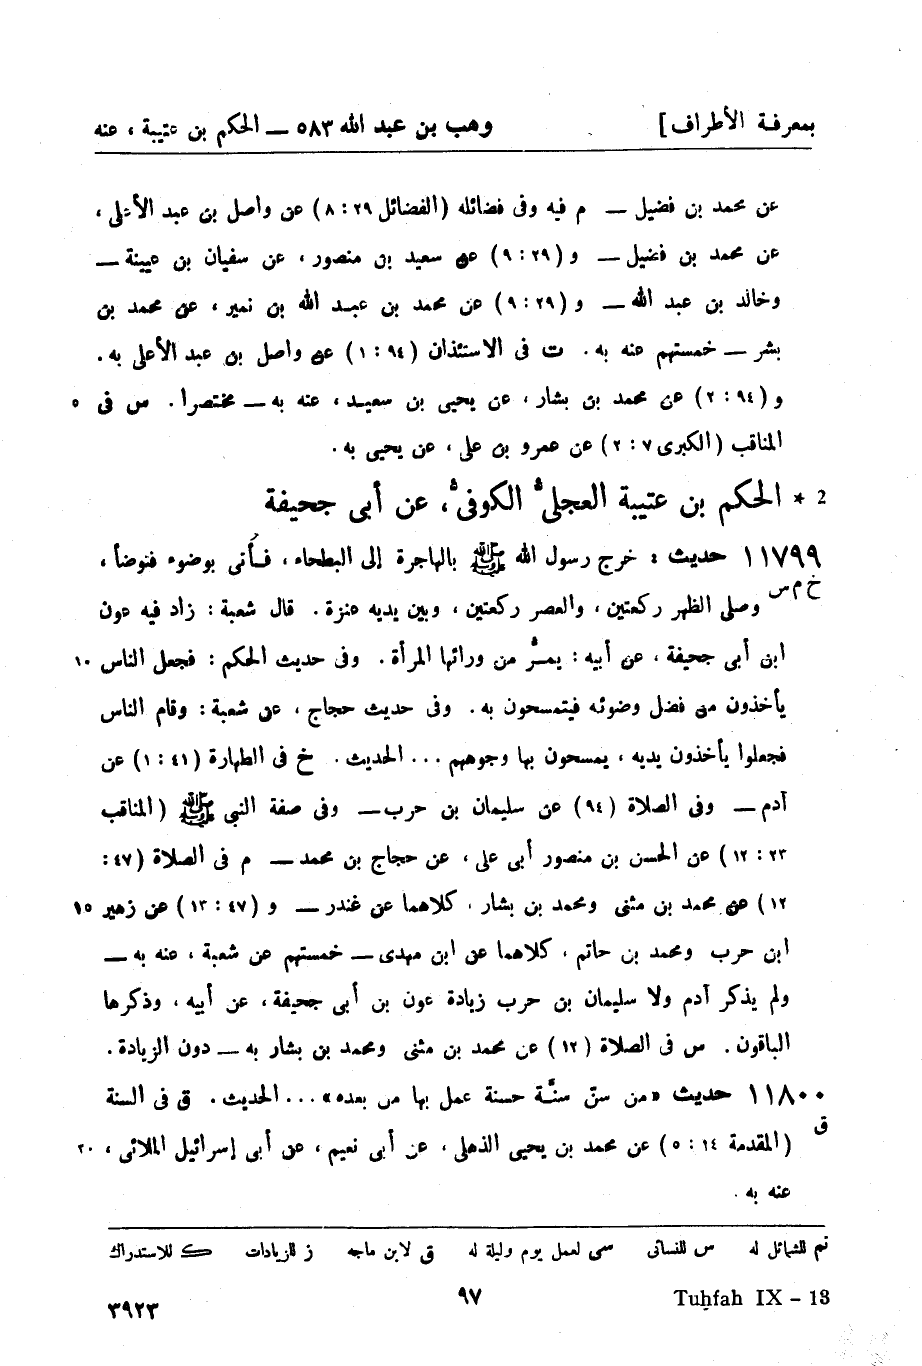 بمعرفة الأطراف] وهب بن عبد الله ٥٨٣ — الحكم بن عتيبة ، عنه
عن محمد بن فضيل — م فيه وفى فضائله (الفضائل ٢٩ : ٨) عن واصل بن عبد الأعلى ،
عن محمد بن فضيل — و (٢٩ : ٩) عن سعيد بن منصور ، عن سفيان بن عيينة —
وخالد بن عبد الله — و (٢٩ : ٩) عن محمد بن عبد الله بن نمير ، عن محمد بن
بشر — خمستهم عنه به . ت فى الاستئذان (٩٤ : ١) عن واصل بن عبد الأعلى به .
و (٩٤ : ٢) عن محمد بن بشار ، عن يحيى بن سعيد ، عنه به — مختصرا . س فى ٥
المناقب (الكبرى ٧ : ٢) عن عمرو بن على ، عن يحيى به .
2 * الحكم بن عتيبة العجلىُّ الكوفىُّ، عن أبى جحيفة
١١٧٩٩ حديث : خرج رسول الله ﷺ بالهاجرة إلى البطحاء ، فأُتى بوضوء فتوضأ ،
خ م س وصلى الظهر ركعتين ، والعصر ركعتين ، وبين يديه عنزة . قال شعبة : زاد فيه عون
ابن أبى جحيفة ، عن أبيه : يمرُّ من ورائها المرأة . وفى حديث الحكم : فجعل الناس ١٠
يأخذون من فضل وضوئه فيتمسحون به . وفى حديث حجاج ، عن شعبة : وقام الناس
فجعلوا يأخذون يديه ، يمسحون بها وجوههم ... الحديث . خ فى الطهارة (٤١ : ١) عن
آدم — وفى الصلاة (٩٤) عن سليمان بن حرب — وفى صفة النبى ﷺ (المناقب
٢٣ : ١٢) عن الحسن بن منصور أبى على ، عن حجاج بن محمد — م فى الصلاة (٤٧ :
١٢) عن محمد بن مثنى ومحمد بن بشار ، كلاهما عن غندر — و (٤٧ : ١٣) عن زهير ١٥
ابن حرب ومحمد بن حاتم ، كلاهما عن ابن مهدى — خمستهم عن شعبة ، عنه به —
ولم يذكر آدم ولا سليمان بن حرب زيادة عون بن أبى جحيفة ، عن أبيه ، وذكرها
الباقون . س فى الصلاة (١٢) عن محمد بن مثنى ومحمد بن بشار به — دون الزيادة .
١١٨٠٠ حديث «من سنّ سنَّة حسنة عمل بها من بعده» ... الحديث . ق فى السنة
ق (المقدمة ١٤ : ٥) عن محمد بن يحيى الذهلى ، عن أبى نعيم ، عن أبى إسرائيل الملائى ، ٢٠
عنه به .
تم للشمائل له س للنسائى سى لعمل يوم وليلة له ق لابن ماجه ز للزيادات ك للاستدراك
Tuḥfah IX – 13 ٩٧ ٣٩٢٣